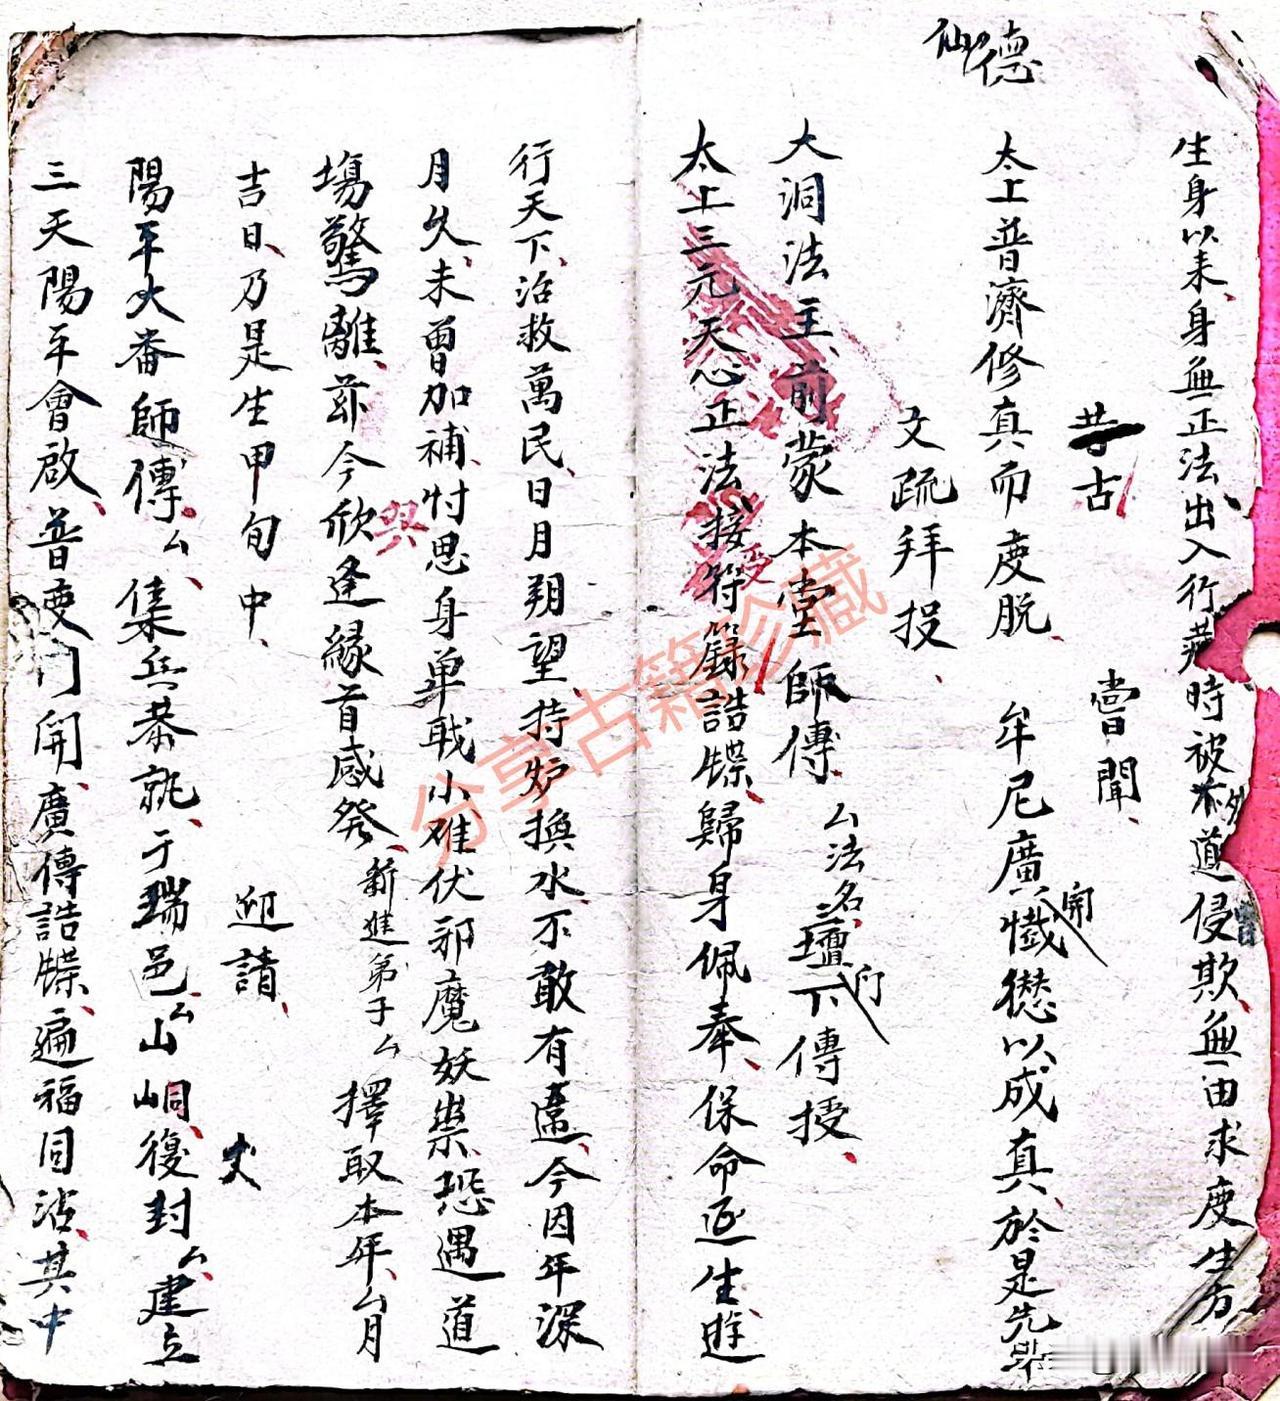 生身以來身無正法出入行藏時被外道侵欺無由求度生方
昔古
嘗聞
仙德
太上普濟修真而度脫
牟尼廣開懺㦥以成真於是先
文疏拜投
大洞法主前蒙本堂師傳厶法名三壇下印傳授
太上三元天心正法接授符籙誥牒歸身佩奉保命延生遊
行天下治救萬民日月朔望持炉換水不敢有違今因年深
月久未曾加補忖思身單戟小难伏邪魔妖祟恐遇道
塲驚離茲今欣逢緣首感發新進弟子厶擇取本年厶月
與
吉日乃是生甲旬中
迎請
陽平大番師傳厶集兵恭就于瑞邑厶山峒復封厶建立
三天陽平會啟普度門開廣傳誥牒遍福同沾其中
分享古籍珍藏